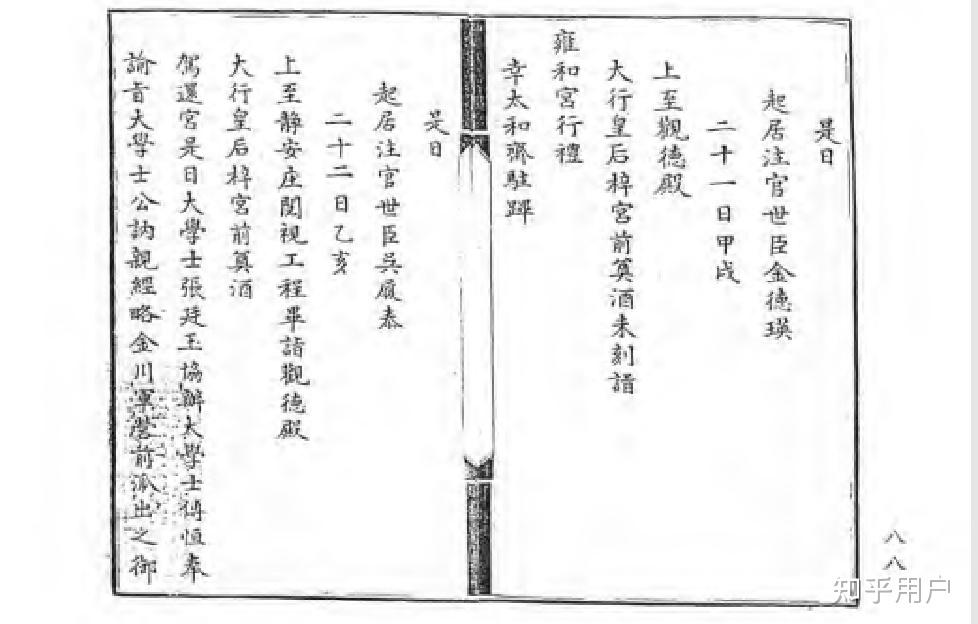 是日
起居注官世臣金德瑛
二十一日甲戌
上至觀德殿
大行皇后梓宮前奠酒未刻詣
雍和宮行禮
幸太和齋駐蹕
是日
起居注官世臣吳履泰
二十二日乙亥
上至靜安庄閱視工程畢詣觀德殿
大行皇后梓宮前奠酒
駕還宮是日大學士張廷玉協辦大學士傅恒奉
諭旨大學士公訥親經略金川軍營前派出之御
八八
知乎用户